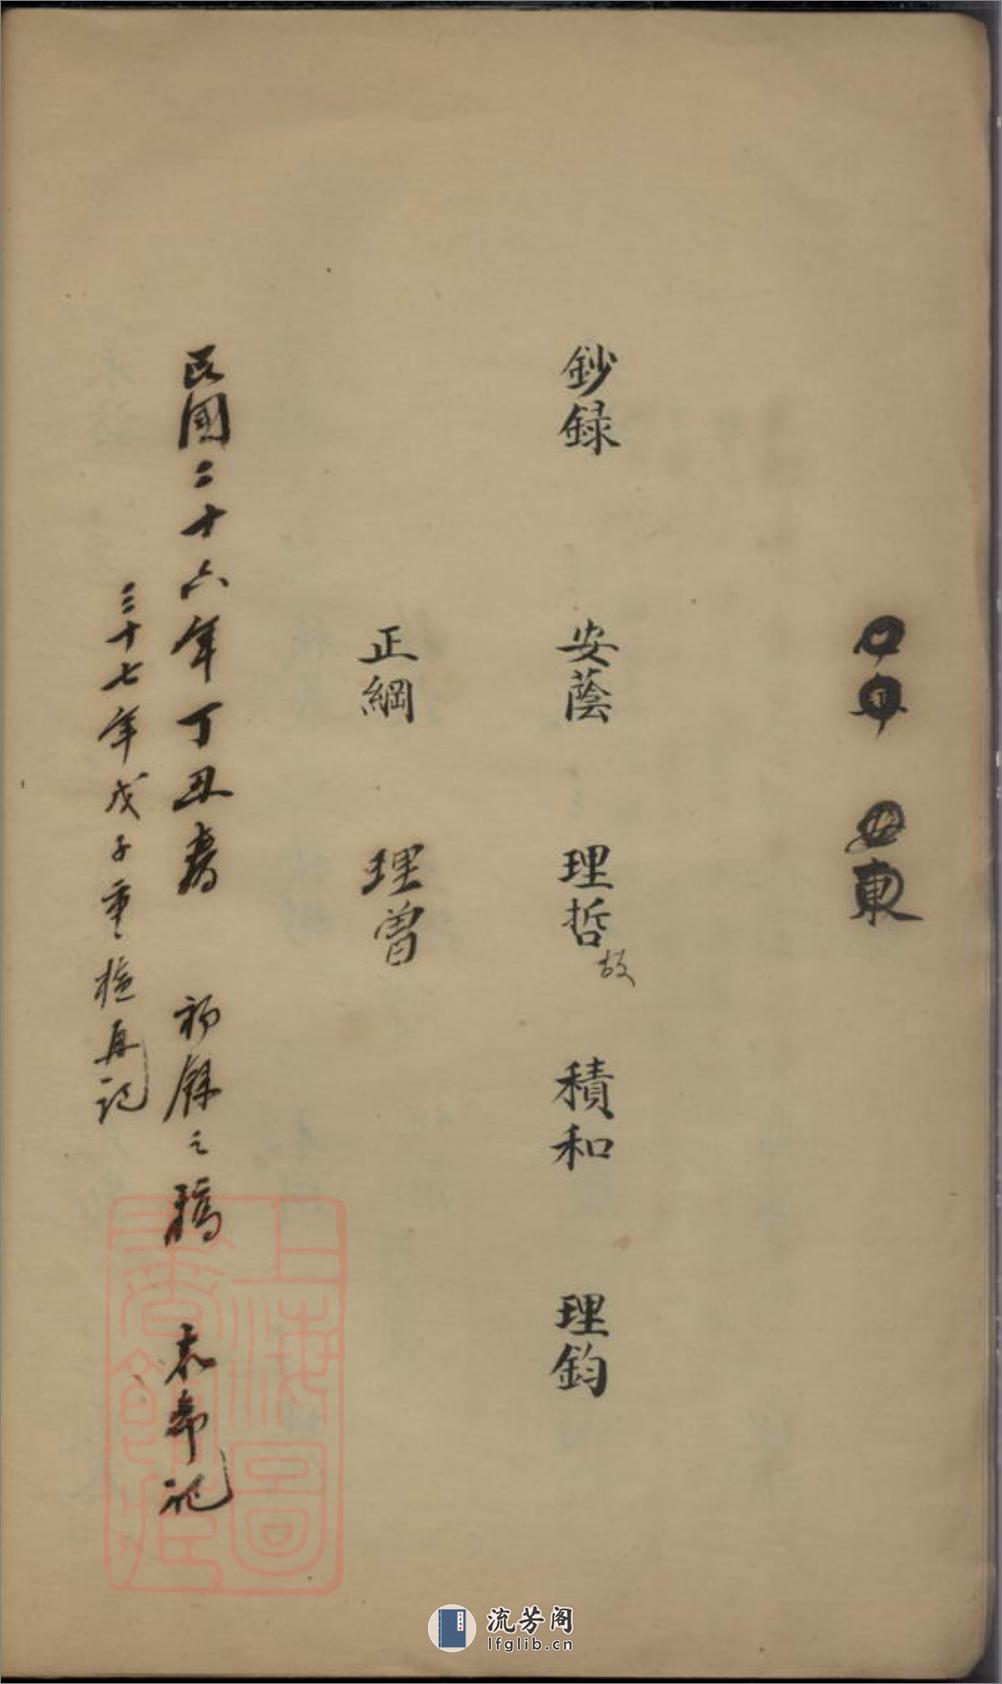 東
鈔録　安蔭　理哲故　積和　理鈞
正綱　理曾
民國二十六年丁丑春　初録之稿　記
三十七年戊子重檢再記
上海圖書館藏
流芳阁
lfglib.cn